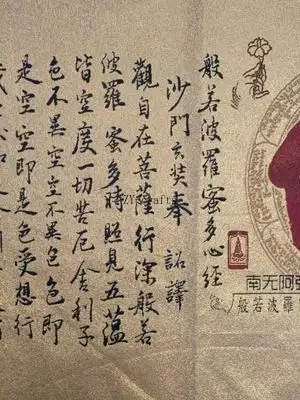 般若波羅蜜多心經
沙門玄奘奉 詔譯
觀自在菩薩行深般若
波羅蜜多時照見五蘊
皆空度一切苦厄舍利子
色不異空空不異色色即
是空空即是色受想行
南无阿
般若波羅